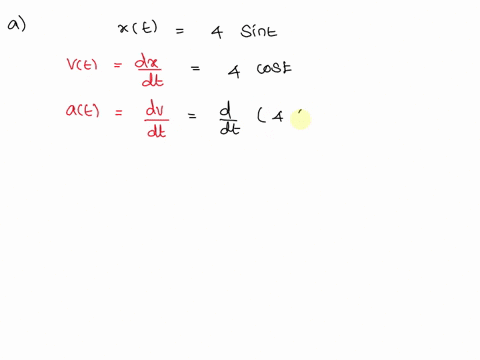 a) x(t) = 4 Sint
V(t) = dx/dt = 4 cost
a(t) = dv/dt = d/dt ( 4